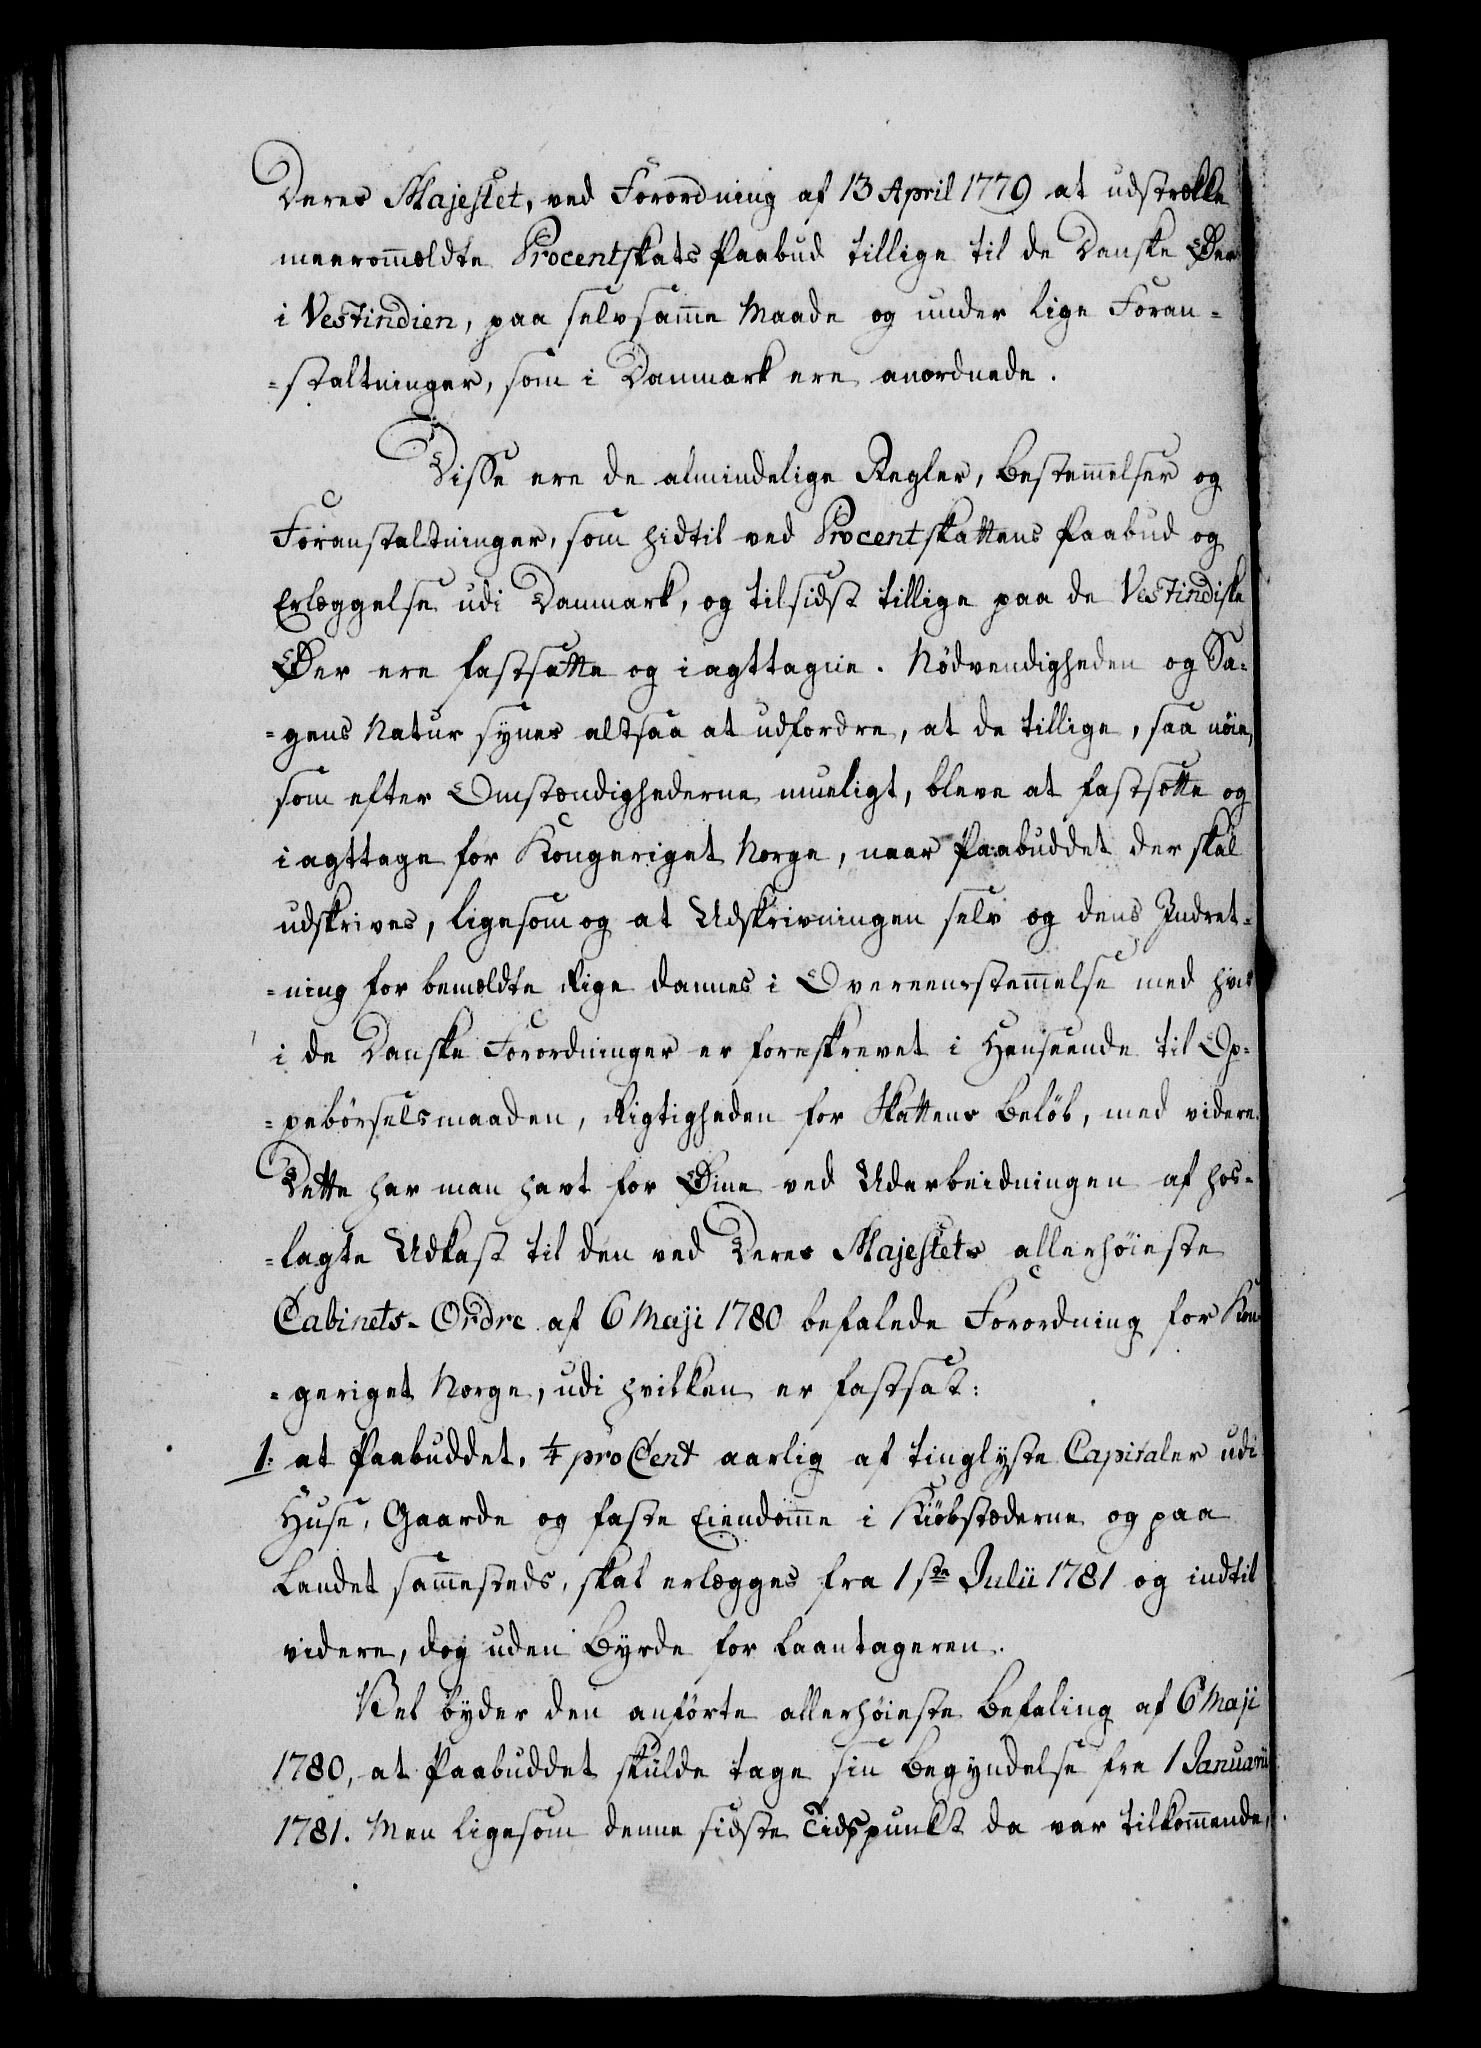 Deres Majestet, ved Forordning af 13 April 1779 at udstrække
meerommældte Procentskats Paabud tillige til de Danske Øer
i Vestindien, paa selvsamme Maade og under lige Foran-
-staltninger, som i Danmark ere anordnede.
Disse ere de almindelige Regler, Bestemmelser og
Foranstaltninger, som hidtil ved Procentskattens Paabud og
Erlæggelse udi Danmark, og tilsidst tillige paa de Vestindiske
Øer ere fastsatte og iagttagne. Nødvendigheden og Sa-
-gens Natur synes altsaa at udfordre, at de tillige, saa nöie,
som efter Omstændighederne mueligt, bleve at fastsætte og
iagttage for Kongeriget Norge, naar Paabuddet der skal
udskrives, ligesom og at Udskrivningen selv og dens Indret-
-ning for bemældte Rige dannes i Overeensstemmelse med hvad
i de Danske Forordninger er foreskrevet i Henseende til Op-
-pebörselsmaaden, Rigtigheden for Skattens Belöb, med videre.
Dette har man havt for Øine ved Udarbeidningen af hos-
-lagte Udkast til den ved Deres Majestets allerhöieste
Cabinets-Ordre af 6 Maji 1780 befalede Forordning for Kon-
-geriget Norge, udi hvilken er fastsat:
1. at Paabuddet, ¼ pro Cent aarlig af tinglyste Capitaler udi
Huse, Gaarde og faste Eiendomme i Kiöbstæderne og paa
Landet sammesteds, skal erlægges fra 1ste Julii 1781 og indtil
videre, dog uden Byrde for Laantageren.
Vel byder den anförte allerhöieste Befaling af 6 Maji
1780, at Paabuddet skulde tage sin Begyndelse fra 1 Januarii
1781. Men ligesom denne sidste Tidspunkt da var tilkommende,